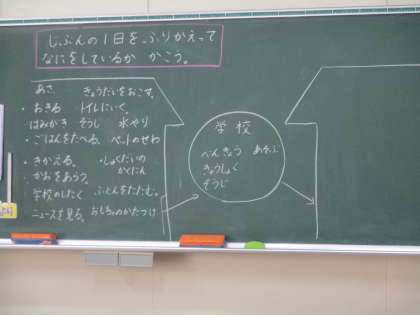 じぶんの1日をふりかえって
なにをしているか かこう。
あさ
きょうだいをおこす。
・おきる トイレにいく。
・はみがき そうじ 水やり
・ごはんをたべる。ペットのせわ
・きがえる。
・しょくだいの
かくにん
・かおをあらう
・学校のしたく ふとんをたたむ。
ニュースを見る。おもちゃのかたづけ
学校
べんきょう あそぶ
きゅうしょく
そうじ